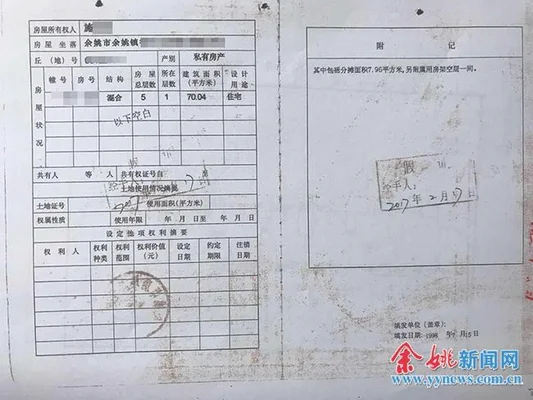 房屋所有权人 施
房屋坐落 余姚市余姚镇
丘(地)号 产别 私有房产
房屋状况 幢号 房号 结构 房屋总层数 所在层数 建筑面积(平方米) 设计用途
混合 5 1 70.04 住宅
以下空白
共有人 等 人 共有权证号自 至
土地使用情况摘要
土地证号 使用面积(平方米)
权属性质 使用年限 年 月 日至 年 月 日
设定他项权利摘要
权利人 权利种类 权利范围 权利价值(元) 设定日期 约定期限 注销日期
附 记
其中包括分摊面积7.95平方米,另附属用房架空层一间。
假
经手人,
2017年2月17日
填发单位(盖章):
填发日期:1998 年 月 15日
余姚新闻网
www.yynews.com.cn